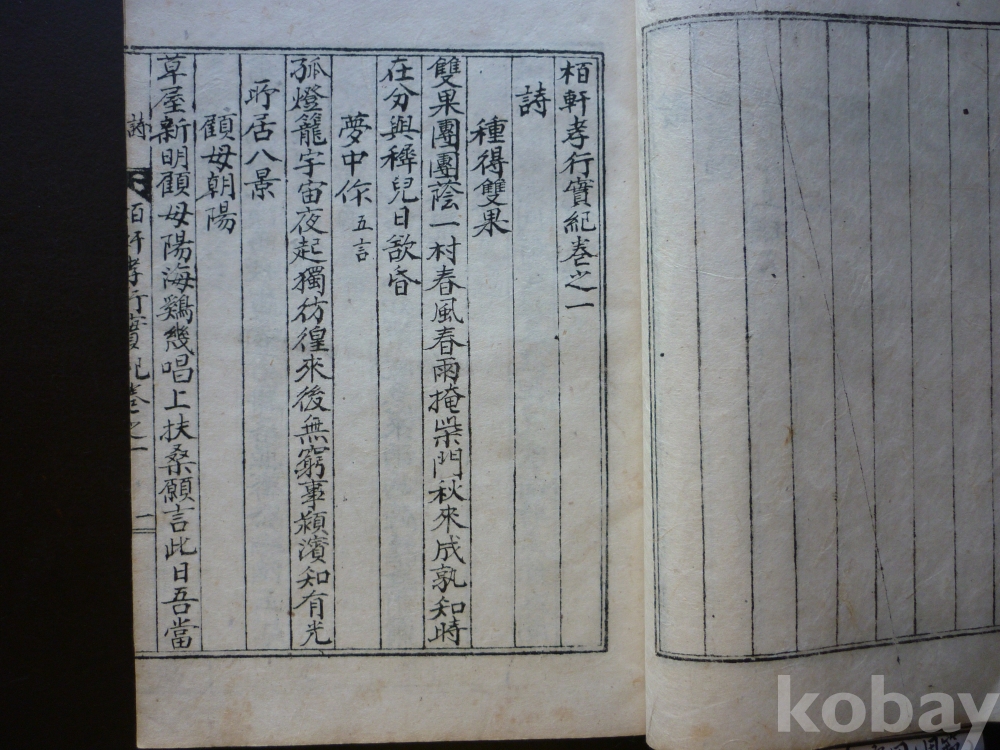 栢軒孝行實紀卷之一
詩
種得雙果
雙果團團蔭一村春風春雨掩柴門秋來成孰知時
在分與稺兒日欲昏
夢中作 五言
孤燈籠宇宙夜起獨彷徨來後無窮事潁濱知有光
所居八景
顧母朝陽
草屋新明顧母陽海鷄幾唱上扶桑願言此日吾當
詩 栢軒孝行實紀卷之一 一
kobay